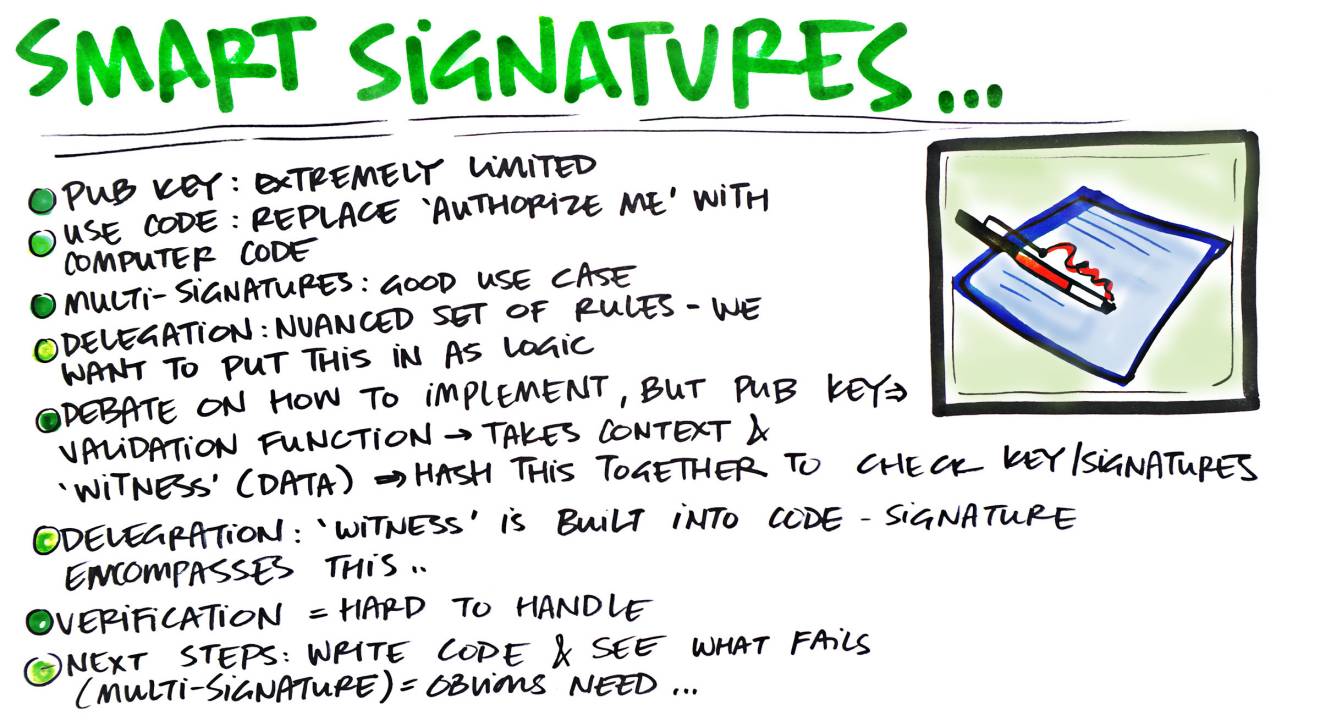 SMART SIGNATURES...
PUB KEY: EXTREMELY LIMITED
USE CODE: REPLACE 'AUTHORIZE ME' WITH
COMPUTER CODE
MULTI-SIGNATURES: GOOD USE CASE
DELEGATION: NUANCED SET OF RULES - WE
WANT TO PUT THIS IN AS LOGIC
DEBATE ON HOW TO IMPLEMENT, BUT PUB KEY⇒
VALIDATION FUNCTION → TAKES CONTEXT &
'WITNESS' (DATA) ⇒ HASH THIS TOGETHER TO CHECK KEY/SIGNATURES
DELEGRATION: 'WITNESS' IS BUILT INTO CODE - SIGNATURE
ENCOMPASSES THIS..
VERIFICATION = HARD TO HANDLE
NEXT STEPS: WRITE CODE & SEE WHAT FAILS
(MULTI-SIGNATURE) = NEED ...